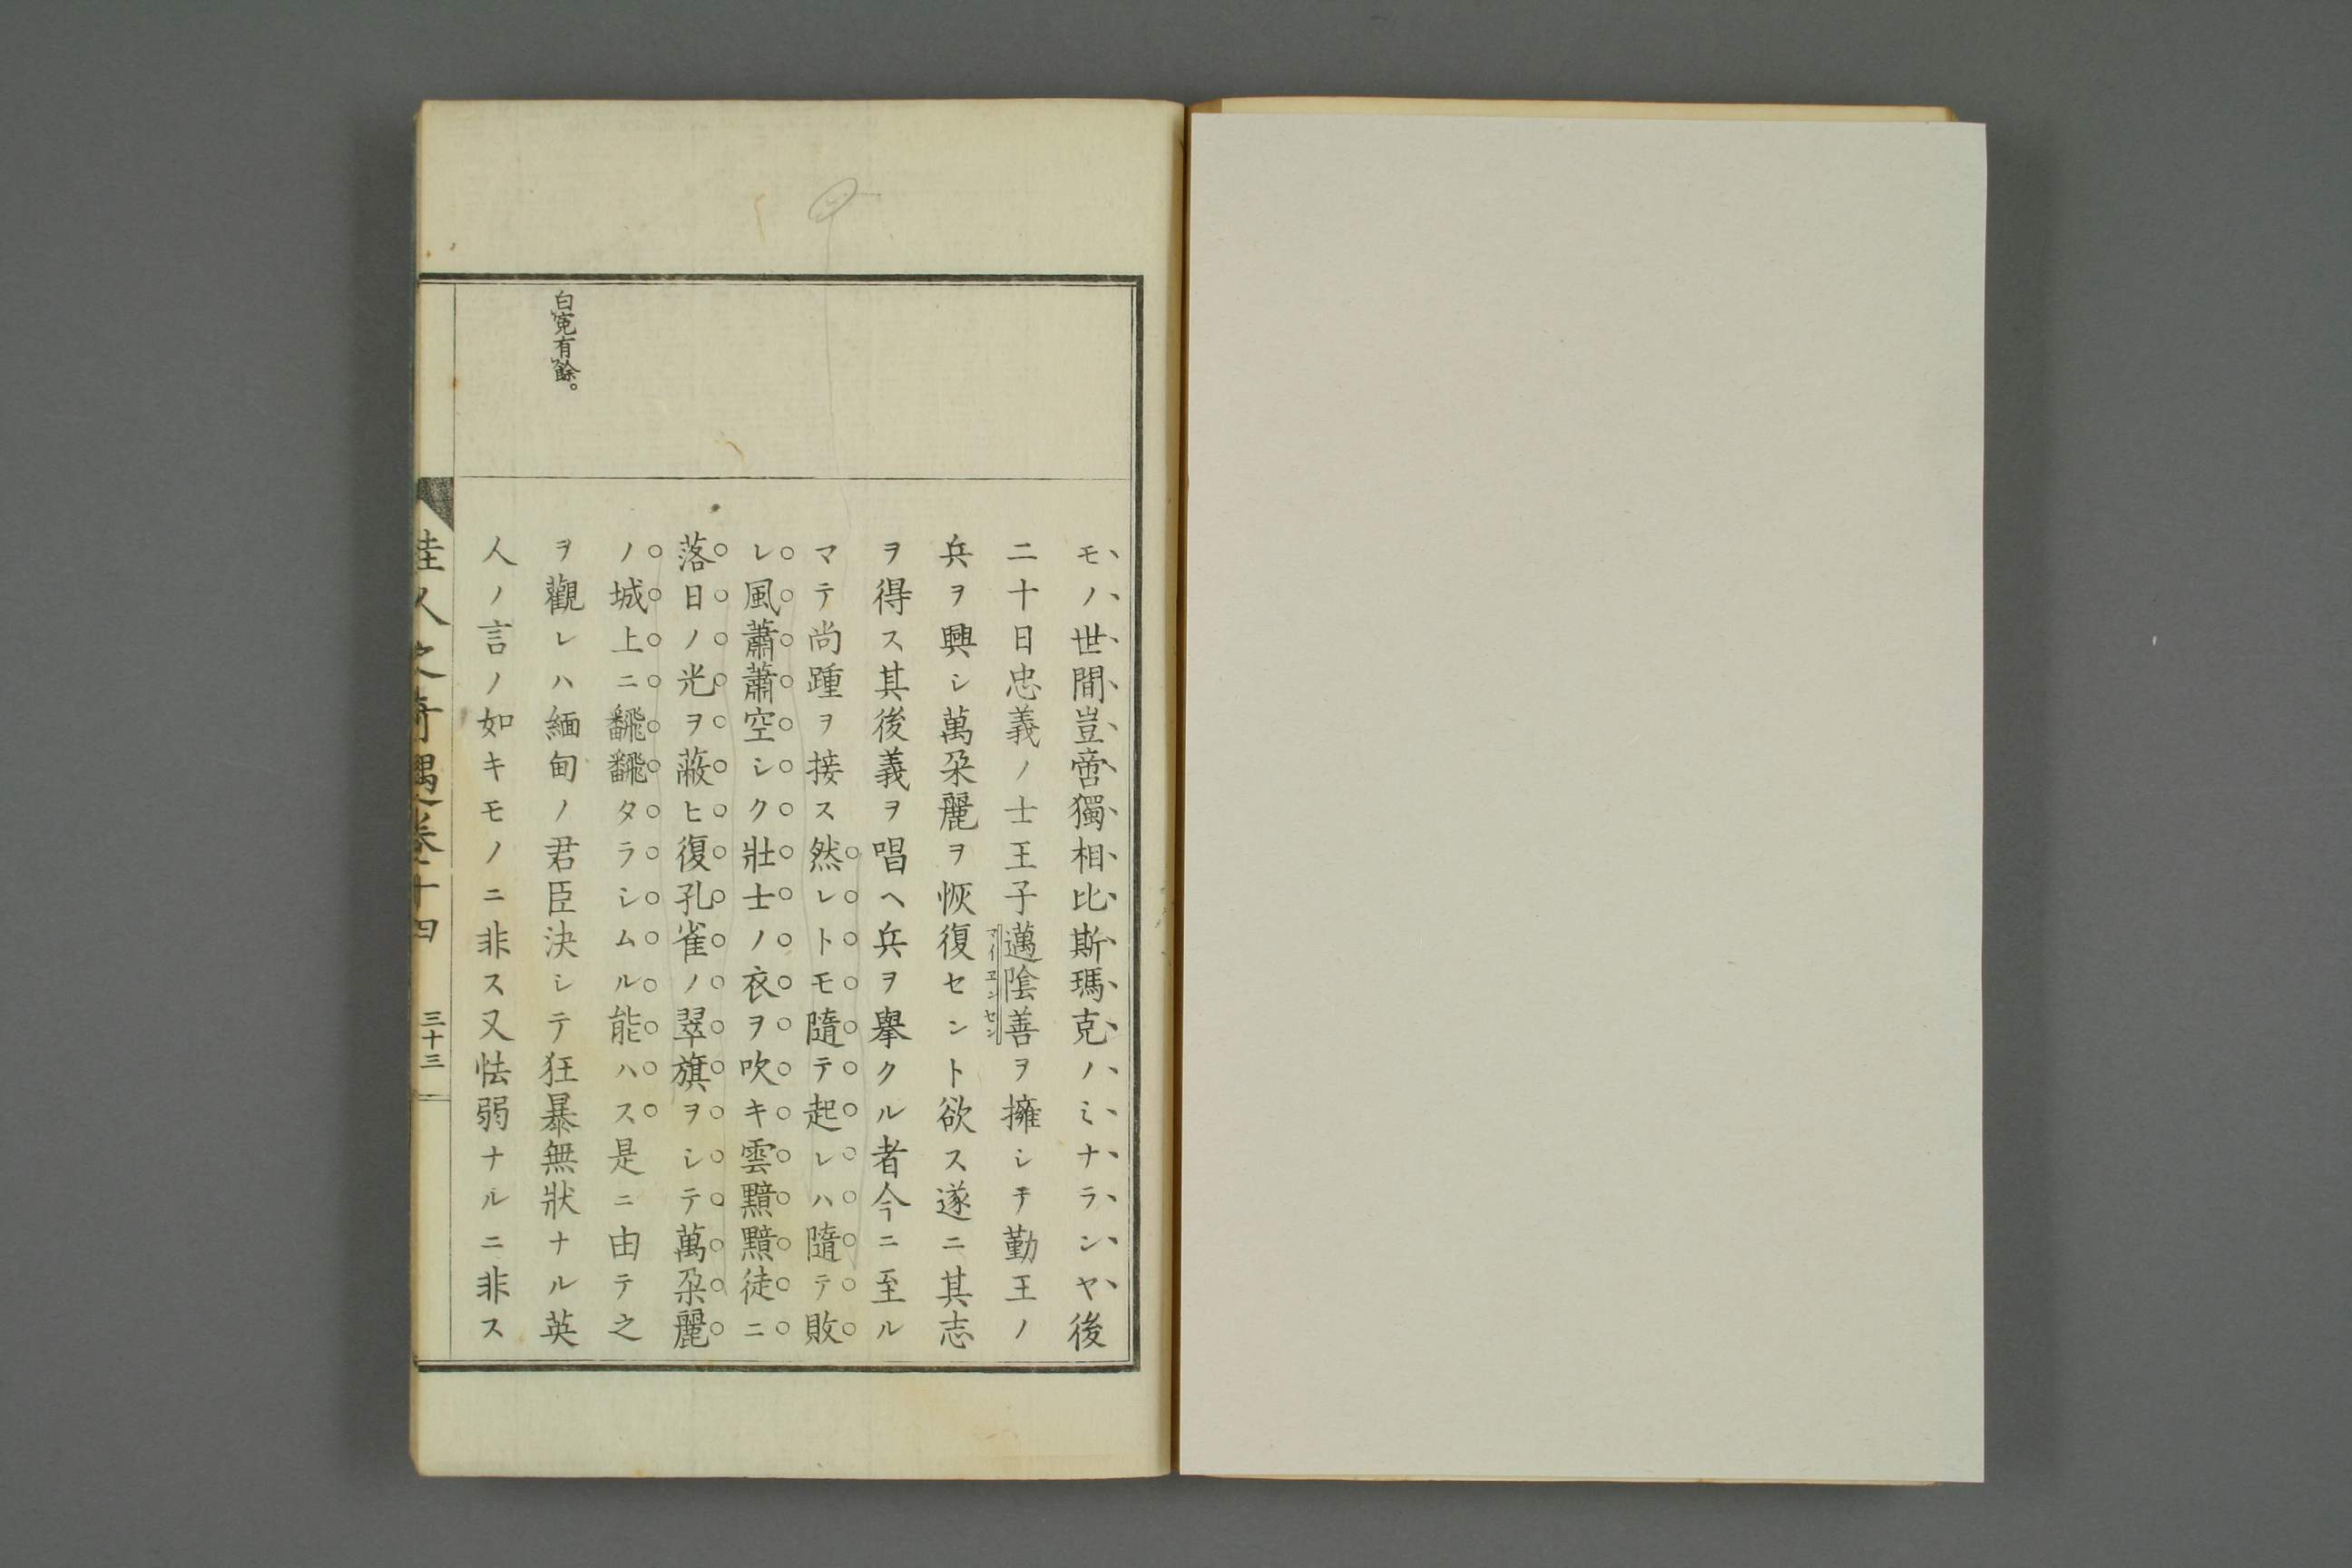 モノ世間豈啻獨相比斯瑪克ノミナランヤ後
二十日忠義ノ士王子邁陰善ヲ擁シテ勤王ノ
マイヱンセン
兵ヲ興シ萬朶麗ヲ恢復セント欲ス遂ニ其志
ヲ得ス其後義ヲ唱ヘ兵ヲ擧クル者今ニ至ル
マテ尚踵ヲ接ス然レトモ隨テ起レハ隨テ敗
レ風蕭蕭空シク壯士ノ衣ヲ吹キ雲黯黯徒ニ
落日ノ光ヲ蔽ヒ復孔雀ノ翠旗ヲシテ萬朶麗
ノ城上ニ飜飜タラシムル能ハス是ニ由テ之
ヲ觀レハ緬甸ノ君臣決シテ狂暴無狀ナル英
人ノ言ノ如キモノニ非ス又怯弱ナルニ非ス
白寃有餘。
佳人之奇遇卷十四
三十三